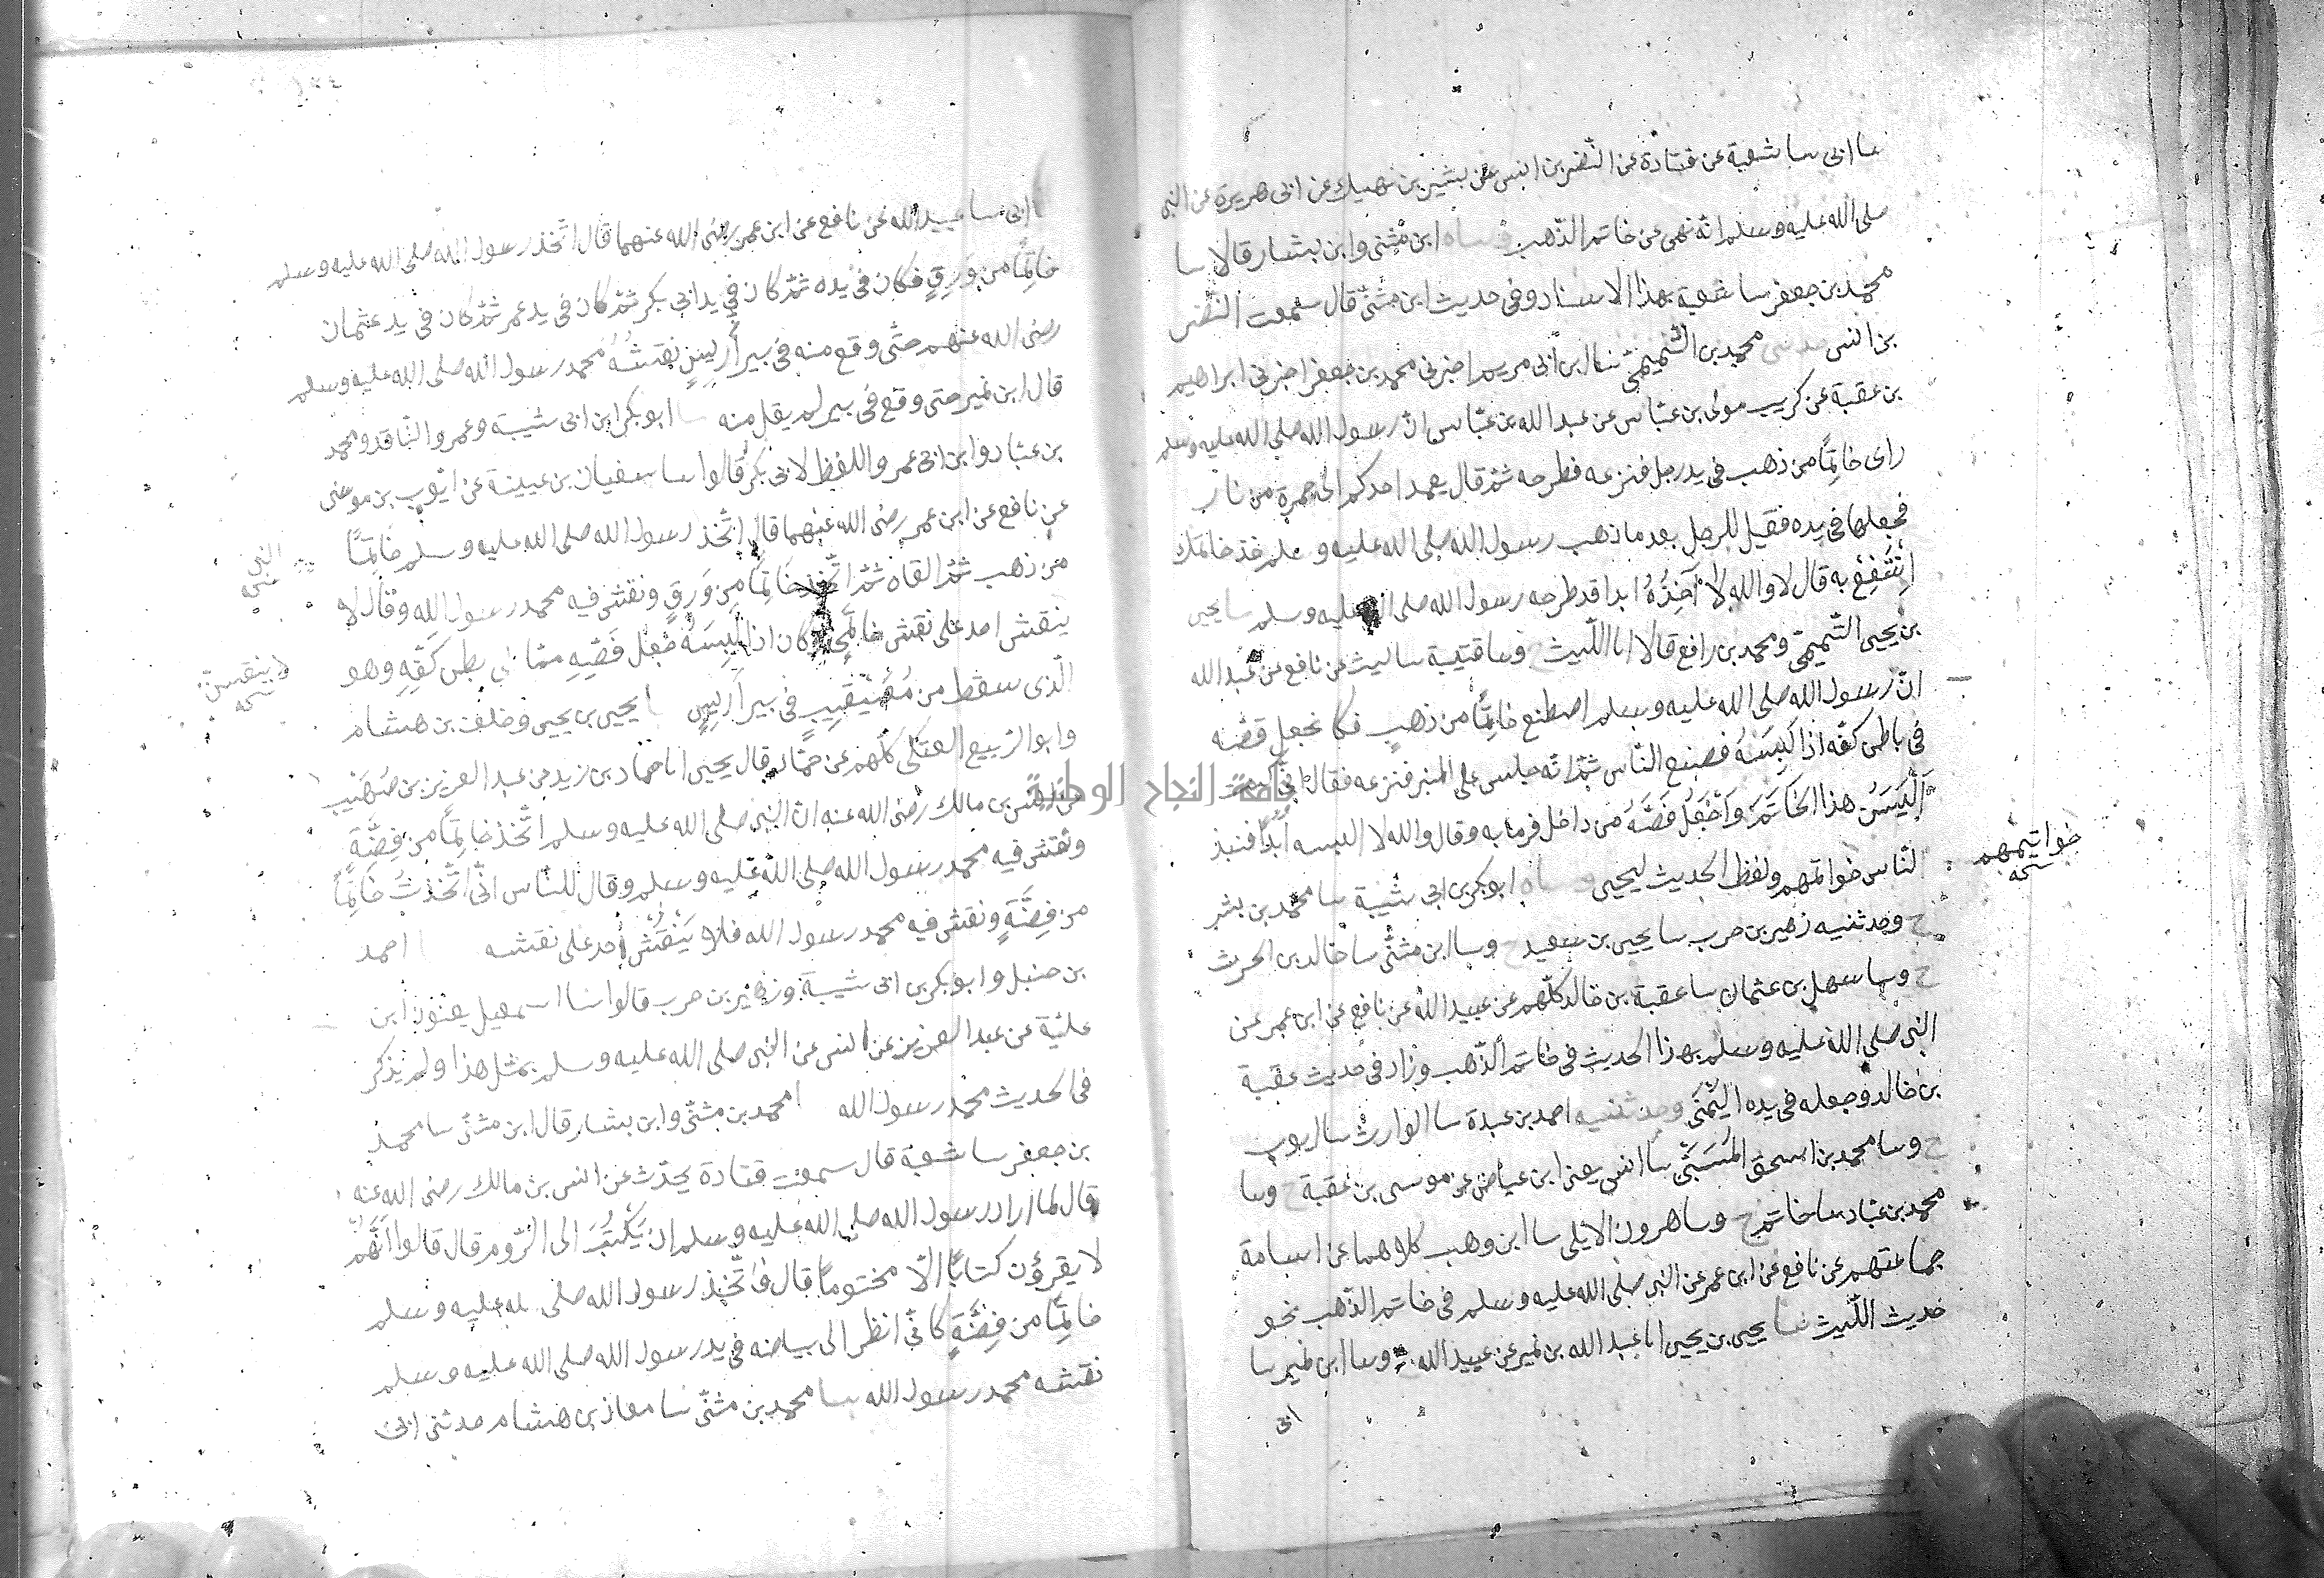 سا ابى سا شعبة عن قتادة عن النّضر بن انس عن بشير بن نهيك عن ابى هريرة عن النبى
صلى الله عليه وسلم انّه نهى عن خاتم الذّهب وساه ابن مثنى وابن بشار قالا سا
محمد بن جعفر سا شعبة بهذا الاسناد وفى حديث ابن مثنّى قال سمعت النّضر
بن انس حدثنى محمد بن التّميمىّ سا ابن ابى مريم اخبرنى محمد بن جعفر اخبرنى ابراهيم
بن عقبة عن كريب مولى بن عبّاس عن عبد الله بن عبّاس انّ رسول الله صلى الله عليه وسلم
راى خاتِمًا من ذهب فى يد رجل فنزعه فطرحه ثمّ قال يعمد احدكم الى جمرة من نار
فيجعلها فى يده فقيل للرجل بعد ما ذهب رسول الله صلى الله عليه وسلم خذ خاتمك
اِنْتَفِعْ به قال لا والله لا آخذُهُ ابدا قد طرحه رسول الله صلى الله عليه وسلم سا يحيى
بن يحيى التّميمىّ ومحمد بن رافع قالا انا اللّيث ح وسا قتيبة سا ليث عن نافع عن عبد الله
انّ رسول الله صلى الله عليه وسلم اصطنع خاتِمًا من ذهبٍ فكان يجعل فصّه
فى باطن كفّه اذا لَبِسَهُ فصنع النّاس ثمّ انّه جلس على المنبر فنزعه فقال انّى كنت
اَلْبَسُ هذا الخاتَمَ وَاَجْعَلُ فَصَّهُ من داخل فرمى به وقال والله لا البسه ابدًا فنبذ
النّاس خواتمهم ولفظ الحديث ليحيى وساه ابو بكر بن ابى شيبة سا محمد بن بشر
خواتيمهم
نسخه
ح وحدثنيه زهير بن حرب سا يحيى بن سعيد ح وسا ابن مثنّى سا خالد بن الحرث
ح وسا سهل بن عثمان سا عقبة بن خالد كلّهم عن عبيد الله عن نافع عن ابن عمر عن
النبى صلى الله عليه وسلم بهذا الحديث فى خاتم الذّهب وزاد فى حديث عقبة
بن خالد وجعله فى يده اليُمْنَى وحدثنيه احمد بن عبدة سا الوارث سا ايوب
ح وسا محمد بن اسحق المُسَيَّبىّ سا انس يعنى ابن عياض عن موسى بن عقبة ح وسا
محمد بن عبّاد سا حاتم ح وسا هرون الايلى سا ابن وهب كلاهما عن اسامة
جماعتهم عن نافع عن ابن عمر عن النبى صلى الله عليه وسلم فى خاتم الذّهب نحو
حديث اللّيث سا يحيى بن يحيى انا عبد الله بن نمير عن عبيد الله ح وسا ابن نمير سا
ابى
ابى سا عبيد الله عن نافع عن ابن عمر رضى الله عنهما قال اتّخذ رسول الله صلى الله عليه وسلم
خاتِمًا من وَرِقٍ فكان فى يده ثمّ كان فى يد ابى بكر ثمّ كان فى يد عمر ثمّ كان فى يد عثمان
رضى الله عنهم حتّى وقع منه فى بير أَرِيسٍ نقشُهُ محمد رسول الله صلى الله عليه وسلم
قال ابن نمير حتى وقع فى بير لم يقل منه سا ابو بكر ابن ابى شيبة وعمرو النّاقد ومحمد
بن عبّاد وابن ابى عمر واللفظ لابى بكر قالوا سا سفيان بن عيينة عن ايّوب بن موسى
عن نافع عن ابن عمر رضى الله عنهما قال اتّخذ رسول الله صلى الله عليه وسلم خاتِمًا
النبى
نسخه
من ذهب ثمّ القاه ثمّ اتّخذ خَاتِمًا مِن وَرِقٍ ونقش فيه محمد رسول الله وقال لا
ينقش احد على نقش خاتَمِى وكان اذا لَبِسَهُ جعل فَصَّهِ ممّا يلى بطن كَفِّهِ وهو
لا ينقشنّ
نسخه
الّذى سقط من مُعَيْقِيبٍ فى بير اَرِيسٍ سا يحيى بن يحيى وخلف بن هشام
وابو الرّبيع العتكى كلّهم عن حمّاد قال يحيى انا حمّاد بن زيد عن عبد العزيز بن صُهَيْب
عن انس بن مالك رضى الله عنه انّ النبى صلى الله عليه وسلم اتّخذ خاتِمًا من فِضَّةٍ
جامعة النجاح الوطنية
ونقش فيه محمد رسول الله صلى الله عليه وسلم وقال للنّاس انّى اتّخذتُ خَاتِمًا
من فِضَّةٍ ونقش فيه محمد رسول الله فلا يَنْقُشْ احد على نقشه احمد
بن حنبل وابو بكر بن ابى شيبة وزهير بن حرب قالوا سا اسمعيل يعنون ابن
عليّة عن عبد العزيز عن انس عن النبى صلى الله عليه وسلم بمثل هذا ولم يذكر
فى الحديث محمد رسول الله محمد بن مثنّى وابن بشار قال ابن مثنّى سا محمد
بن جعفر سا شعبة قال سمعت قتادة يحدّث عن انس بن مالك رضى الله عنه
قال لما اراد رسول الله صلى الله عليه وسلم ان يَكْتُبَ الى الرّوم قال قالوا اِنَّهُم
لا يقرؤن كتابًا الّا مختومًا قال فاتّخذ رسول الله صلى الله عليه وسلم
خاتِمًا من فِضَّةٍ كانّى انظر الى بياضه فى يد رسول الله صلى الله عليه وسلم
نقشه محمد رسول الله سا محمد بن مثنّى سا معاذ بن هشام حدثنى ابى